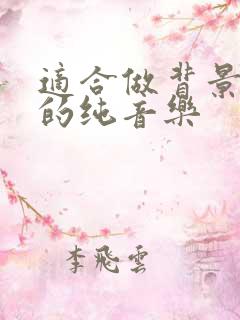 適合做背景
的纯音樂
李飛雲